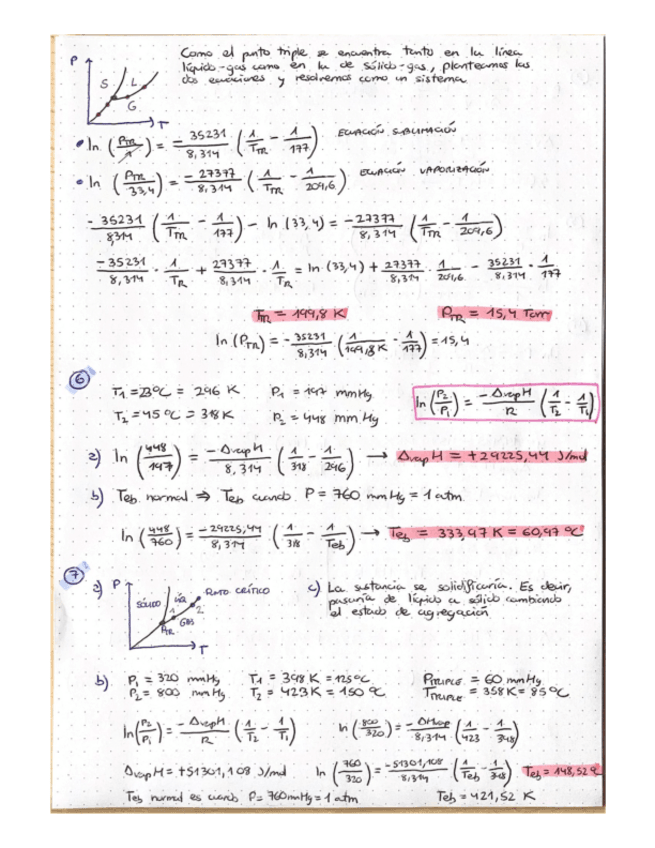 Como el punto triple se encuentra tanto en la línea
líquido-gas como en la de sólido-gas, planteamos las
dos ecuaciones y resolvemos como un sistema
P
S L
G
T
• ln (P_TR/1) = -35231/8,314 (1/T_TR - 1/177) ECUACIÓN SUBLIMACIÓN
• ln (P_TR/33,4) = -27377/8,314 (1/T_TR - 1/209,6) ECUACIÓN VAPORIZACIÓN
-35231/8,314 (1/T_TR - 1/177) - ln (33,4) = -27377/8,314 (1/T_TR - 1/209,6)
-35231/8,314 · 1/T_TR + 27377/8,314 · 1/T_TR = ln (33,4) + 27377/8,314 · 1/209,6 - 35231/8,314 · 1/177
T_TR = 199,8 K P_TR = 15,4 Torr
ln (P_TR) = -35231/8,314 (1/199,8 K - 1/177) = 15,4
6
T1 = 23ºC = 296 K P1 = 197 mmHg ln (P2/P1) = -ΔvapH/R (1/T2 - 1/T1)
T2 = 45ºC = 318K P2 = 448 mmHg
a) ln (448/197) = -ΔvapH/8,314 (1/318 - 1/296) → ΔvapH = +29225,44 J/mol
b) Teb normal ⇒ Teb cuando P = 760 mmHg = 1 atm
ln (448/760) = -29225,44/8,314 (1/318 - 1/Teb) → Teb = 333,97 K = 60,97 ºC
7
a) P
SÓLIDO LÍQ PUNTO CRÍTICO
1 2
P_TR GAS
T
c) La sustancia se solidificaría. Es decir,
pasaría de líquido a sólido cambiando
el estado de agregación
b) P1 = 320 mmHg T1 = 398K = 125ºC P_TRIPLE = 60 mmHg
P2 = 800 mmHg T2 = 423K = 150 ºC T_TRIPLE = 358K = 85ºC
ln (P2/P1) = -ΔvapH/R (1/T2 - 1/T1) ln (800/320) = -ΔHvap/8,314 (1/423 - 1/398)
ΔvapH = +51301,108 J/mol ln (760/320) = -51301,108/8,314 (1/Teb - 1/398) Teb = 148,52 ºC
Teb normal es cuando P = 760mmHg = 1 atm Teb = 421,52 K